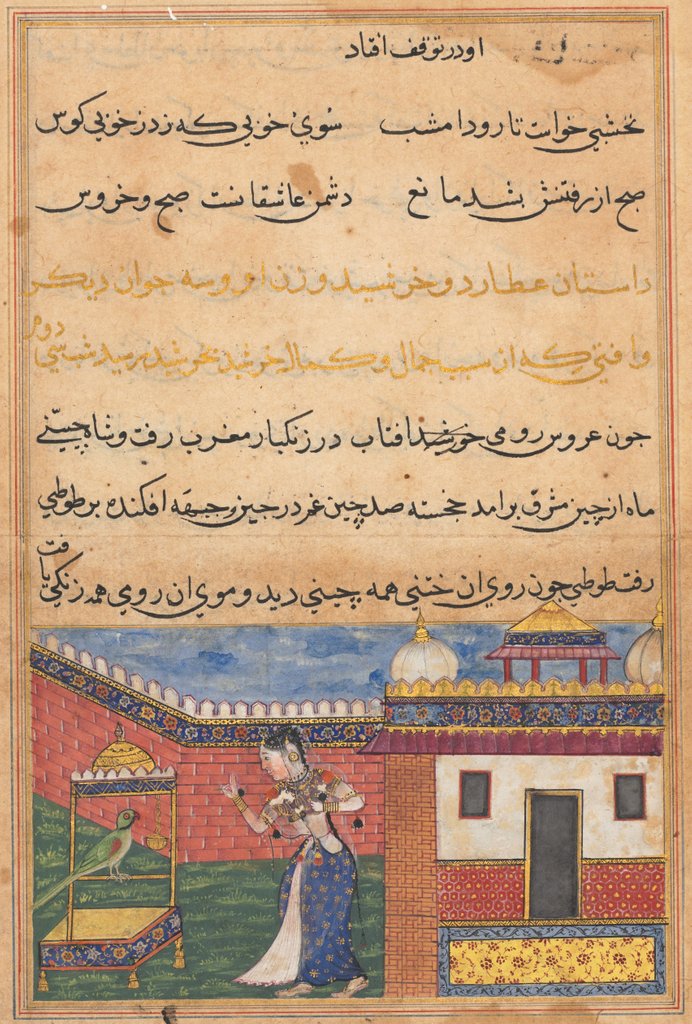 او در توقف افتاد
نخشبی خواست تا رود امشب سوی خوبی که زد ز خوبی کوس
صبح از رفتنش بشد مانع دشمن عاشقانست صبح و خروس
داستان عطارد و خرشید و زن او و سه جوان دیکر
که از سبب جمال و کمال خرشید بخرشید رسید شب سی دوم
چون عروس رومی افتاب در زنکبار مغرب رفت و شاه چینی
ماه از چین مشرق برامد خجسته صد چین غم در جبین و جبهه افکنده بر طوطی
رفت طوطی چون روی ان ختنی همه چینی دید و موی ان رومی همه زنکی یافت